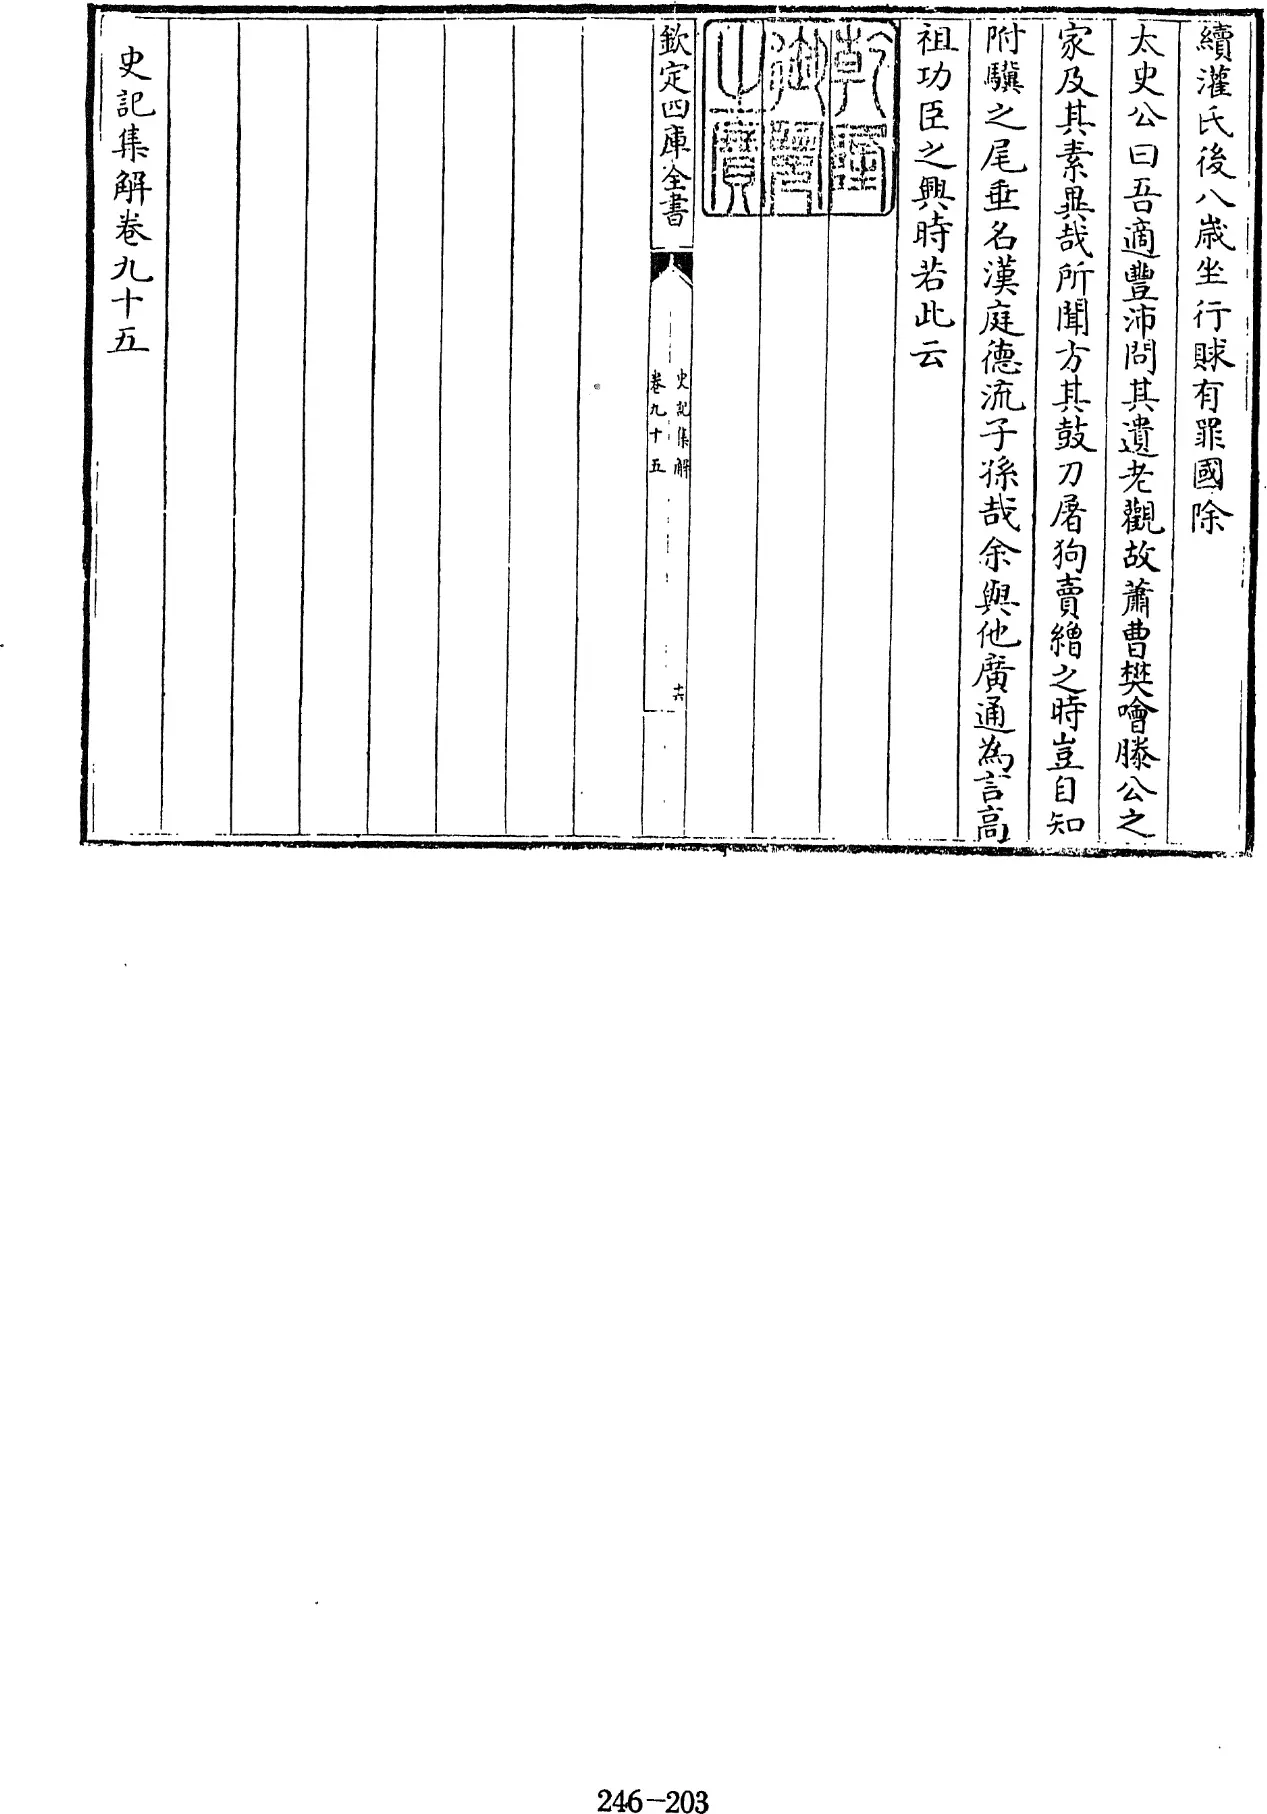 續灌氏後八歳坐行賕有罪國除
太史公曰吾適豐沛問其遺老觀故蕭曹樊噲滕公之
家及其素異哉所聞方其鼓刀屠狗賣繒之時豈自知
附驥之尾垂名漢庭德流子孫哉余與他廣通為言高
祖功臣之興時若此云
乾隆御覽之寶
欽定四庫全書
史記集解
卷九十五
十六
史記集解卷九十五
246-203